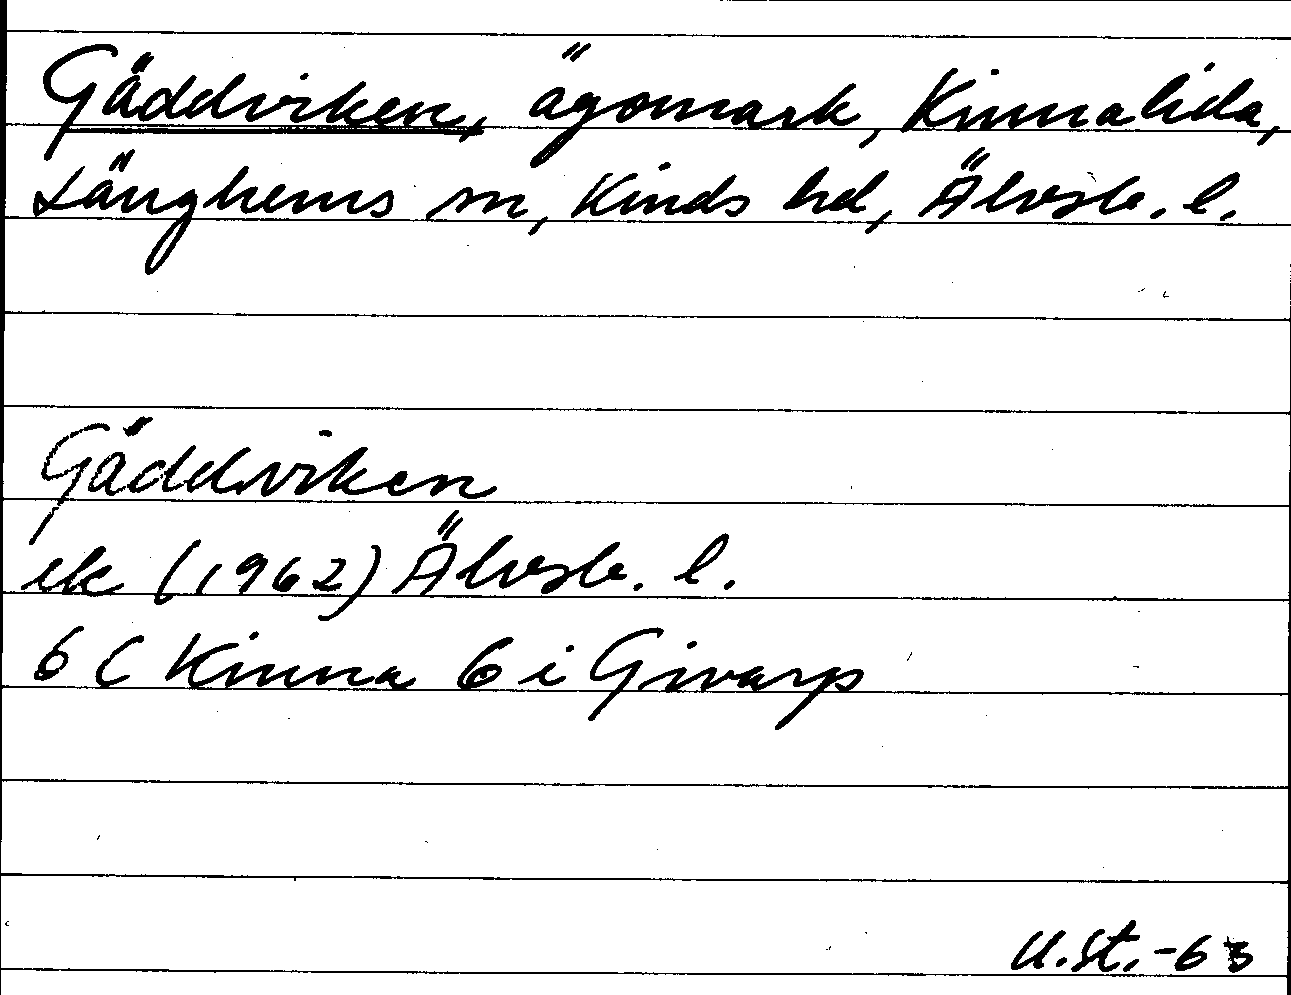 Gäddviken, ägomark, Kinnalida,
Länghems sn, Kinds hd, Älvsb. l.
Gäddviken
ek (1962) Älvsb. l.
6 C Kinna 6 i Givarp
U.St. -63